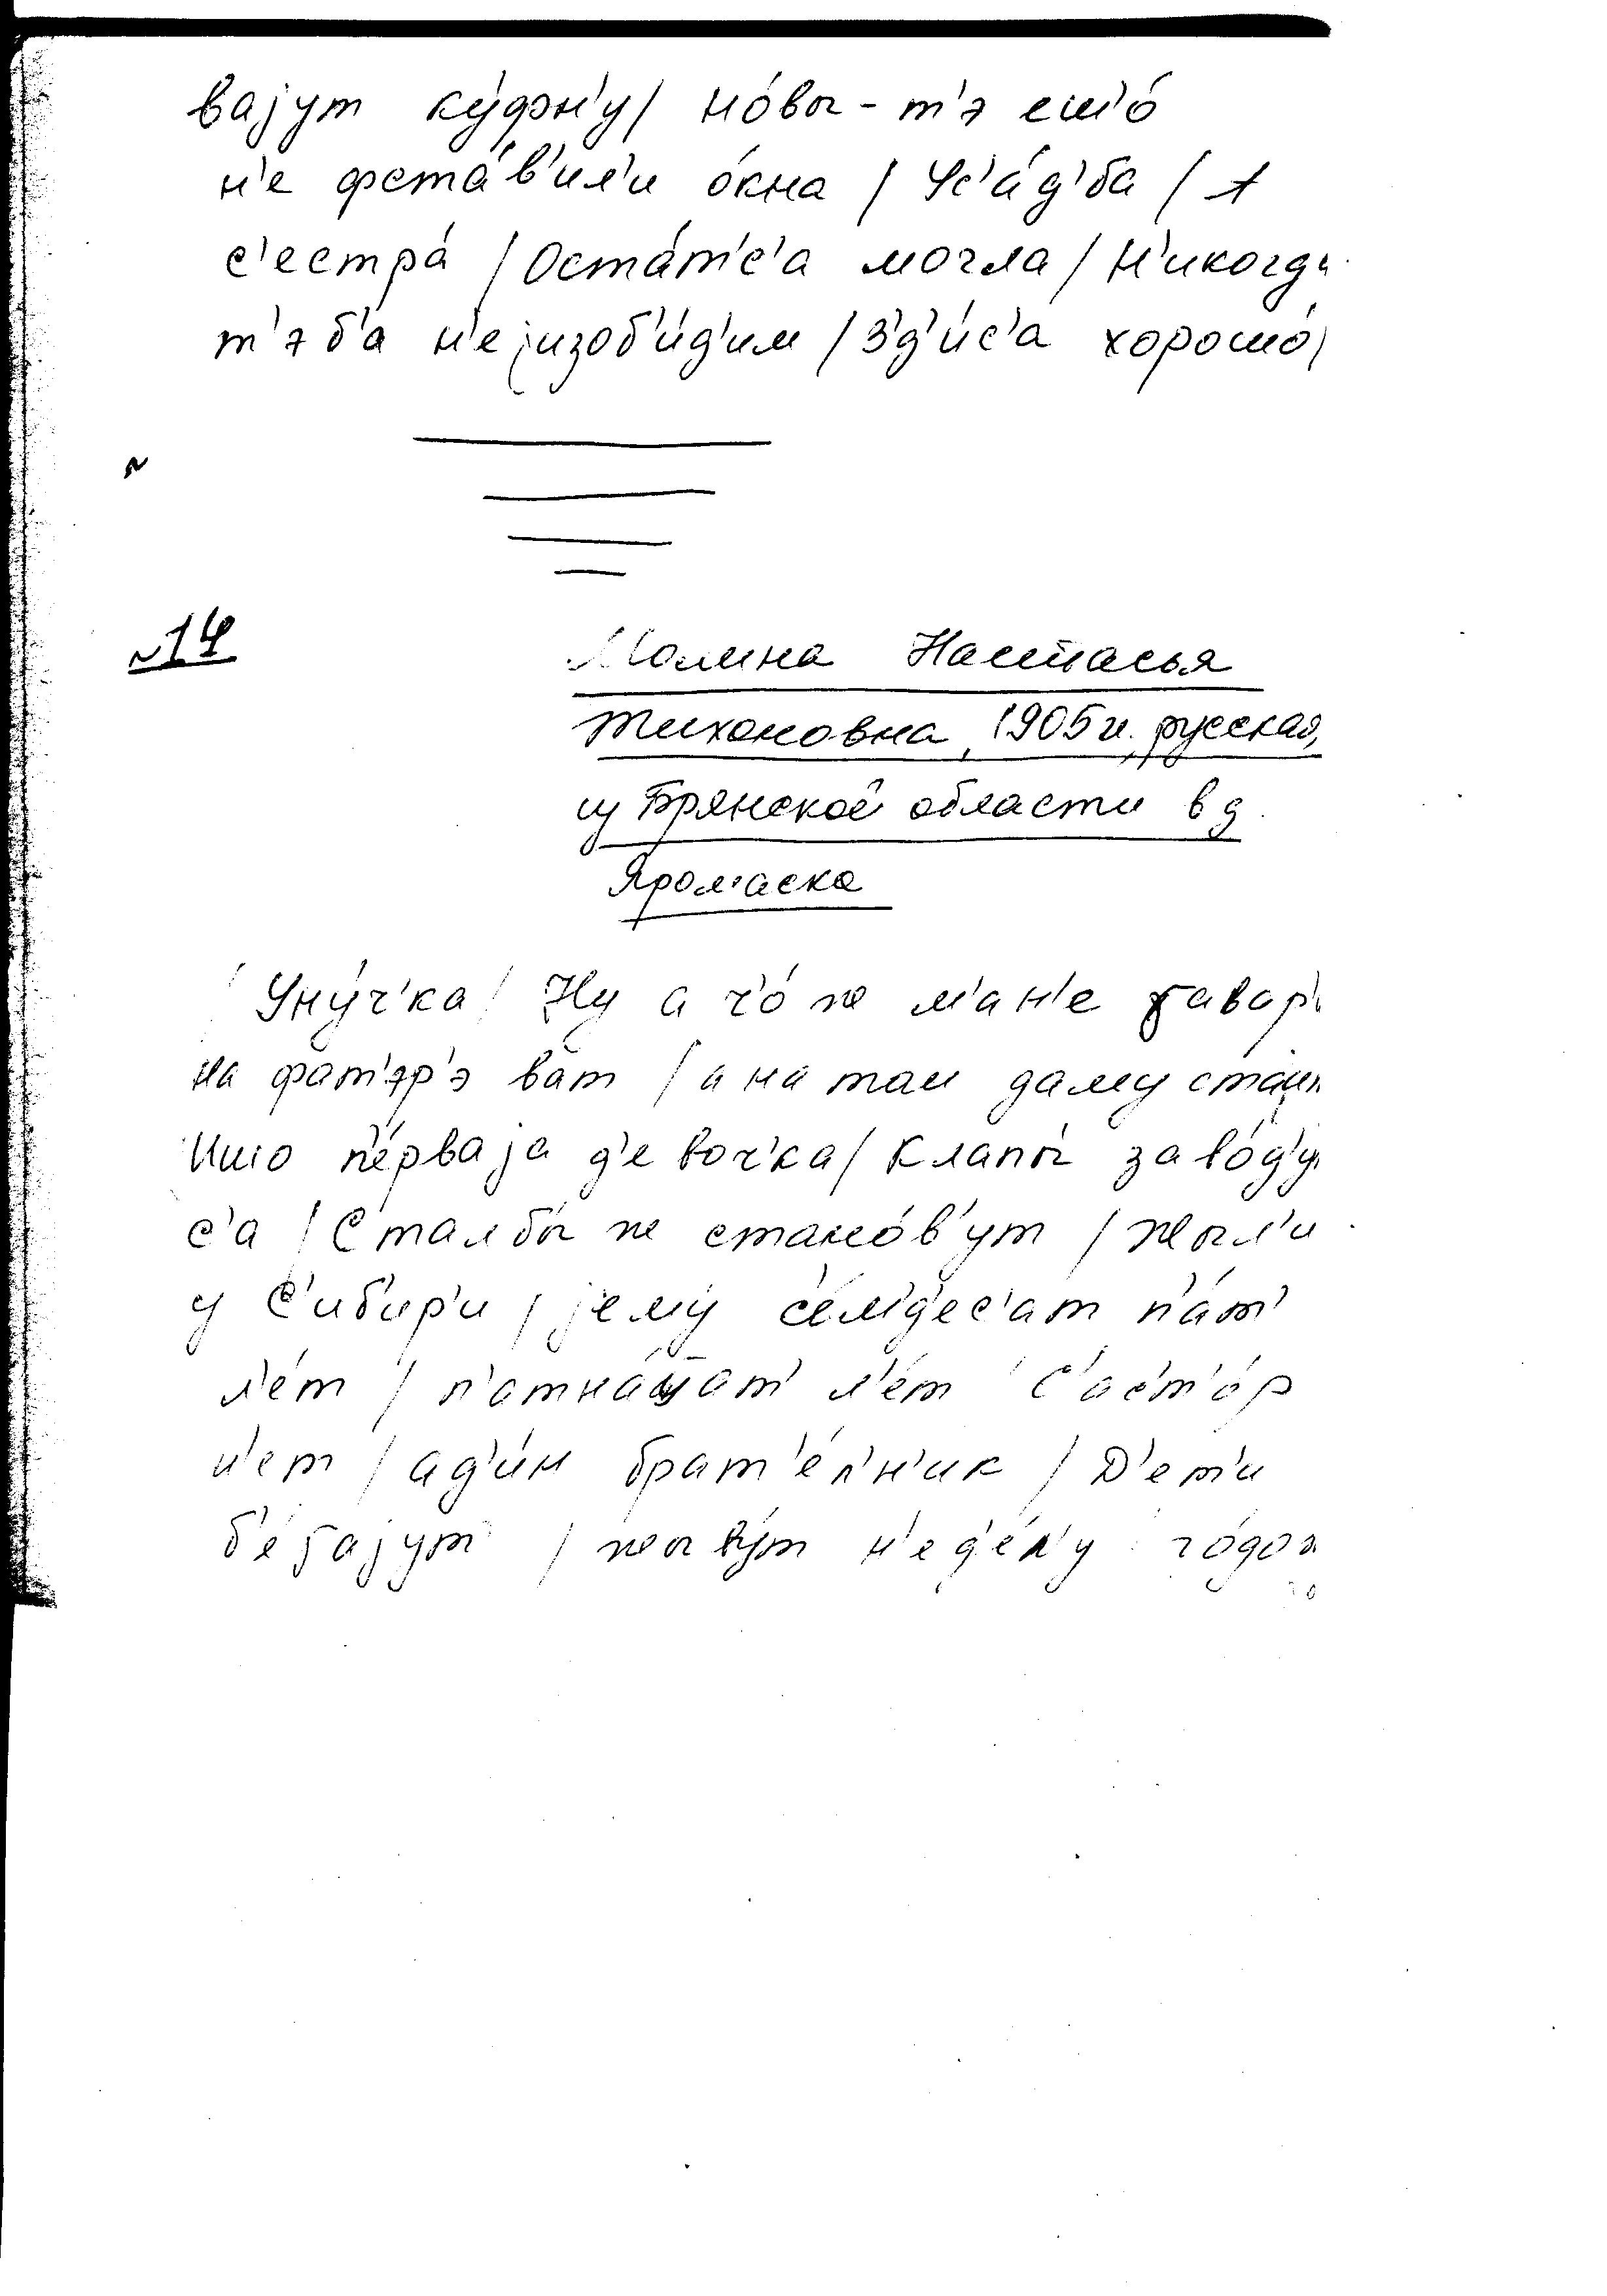 вајут ку́фн'у/ но́вы - т'э ешʼо́
н'е фста́в'ил'и о́кна / Ус'а́д'ба / 1
с'естра́ / Оста́т'с'а могла / Н'икогда
т'э б'а н'е јизоб'и́д'им / З'д'и́с'а хорошо́/
№14
Молина Настасья
Тихоновна, 1905 г. русская,
из Брянской области в д.
Унуч'ка / Ну а ч'о́ же м'а н'е ɣавар'
на фат'эр'э ват / а на там даму
Ишо п'е́рваја д'е воч'ка / Клапы́ заво́д'у
с'а / Сталбы́ же стано́в'ут / жыл'и
у С'иб'ир'и / јему́ с'е́мд'ес'ат п'а́т'
л'е́т / п'атна́цат' л'е́т С'ас'т'о́р
н'ет / ад'и́н брат'е́л'н'ик / Д'ет'и
б'е́ɣајут / жыву́т н'ед'е́л'у го́дов